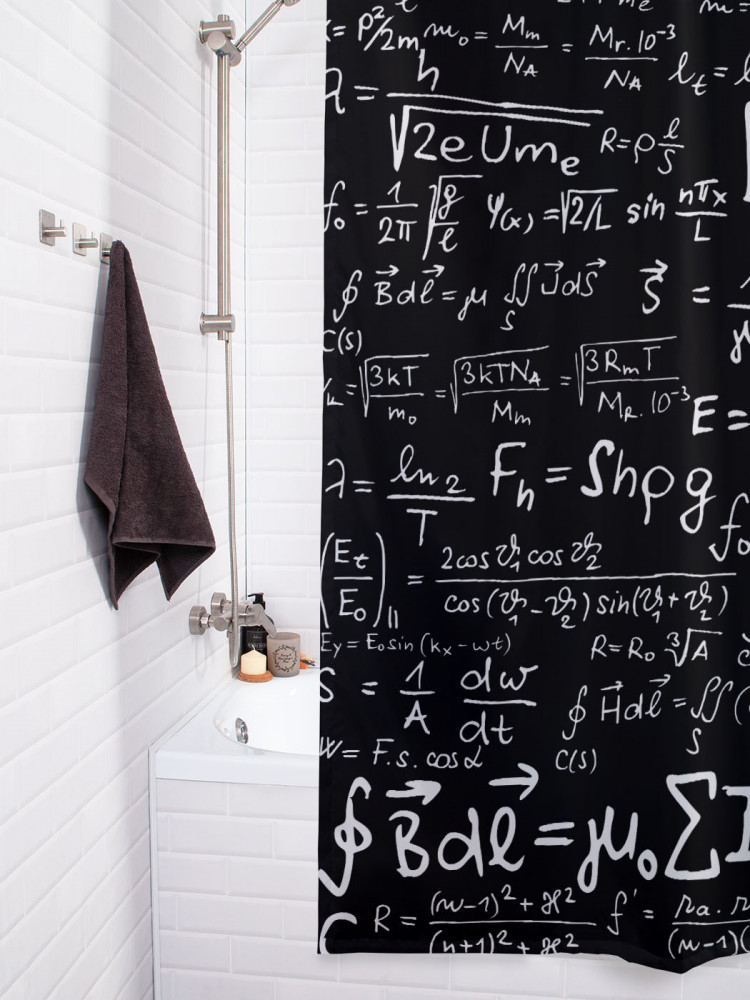 = p²/2m  m₀ = Mm/NA = Mr.10⁻³/NA  lt =
λ = h/√2eUme  R=ρ l/S
f₀ = 1/2π √g/l  ψ(x) = √2/L sin nπx/L
∮ B⃗dl⃗ = μ ∬ J⃗dS⃗  S⃗ =
S
C(S)
= √3kT/m₀ = √3kTNA/Mm = √3RmT/Mr.10⁻³  E =
λ = ln2/T  Fh = Shρg  f₀
(Et/E₀)|| = 2cosϑ₁cosϑ₂/cos(ϑ₁-ϑ₂)sin(ϑ₁+ϑ₂)
Ey = E₀sin(kx-ωt)  R=R₀ ³√A
S = 1/A dw/dt  ∮ H⃗dl⃗ = ∬ (
S
W = F.s.cosα  C(S)
∮ B⃗dl⃗ = μ₀ Σ I
R = (n-1)²+ϰ²/(n+1)²+ϰ²  f' =